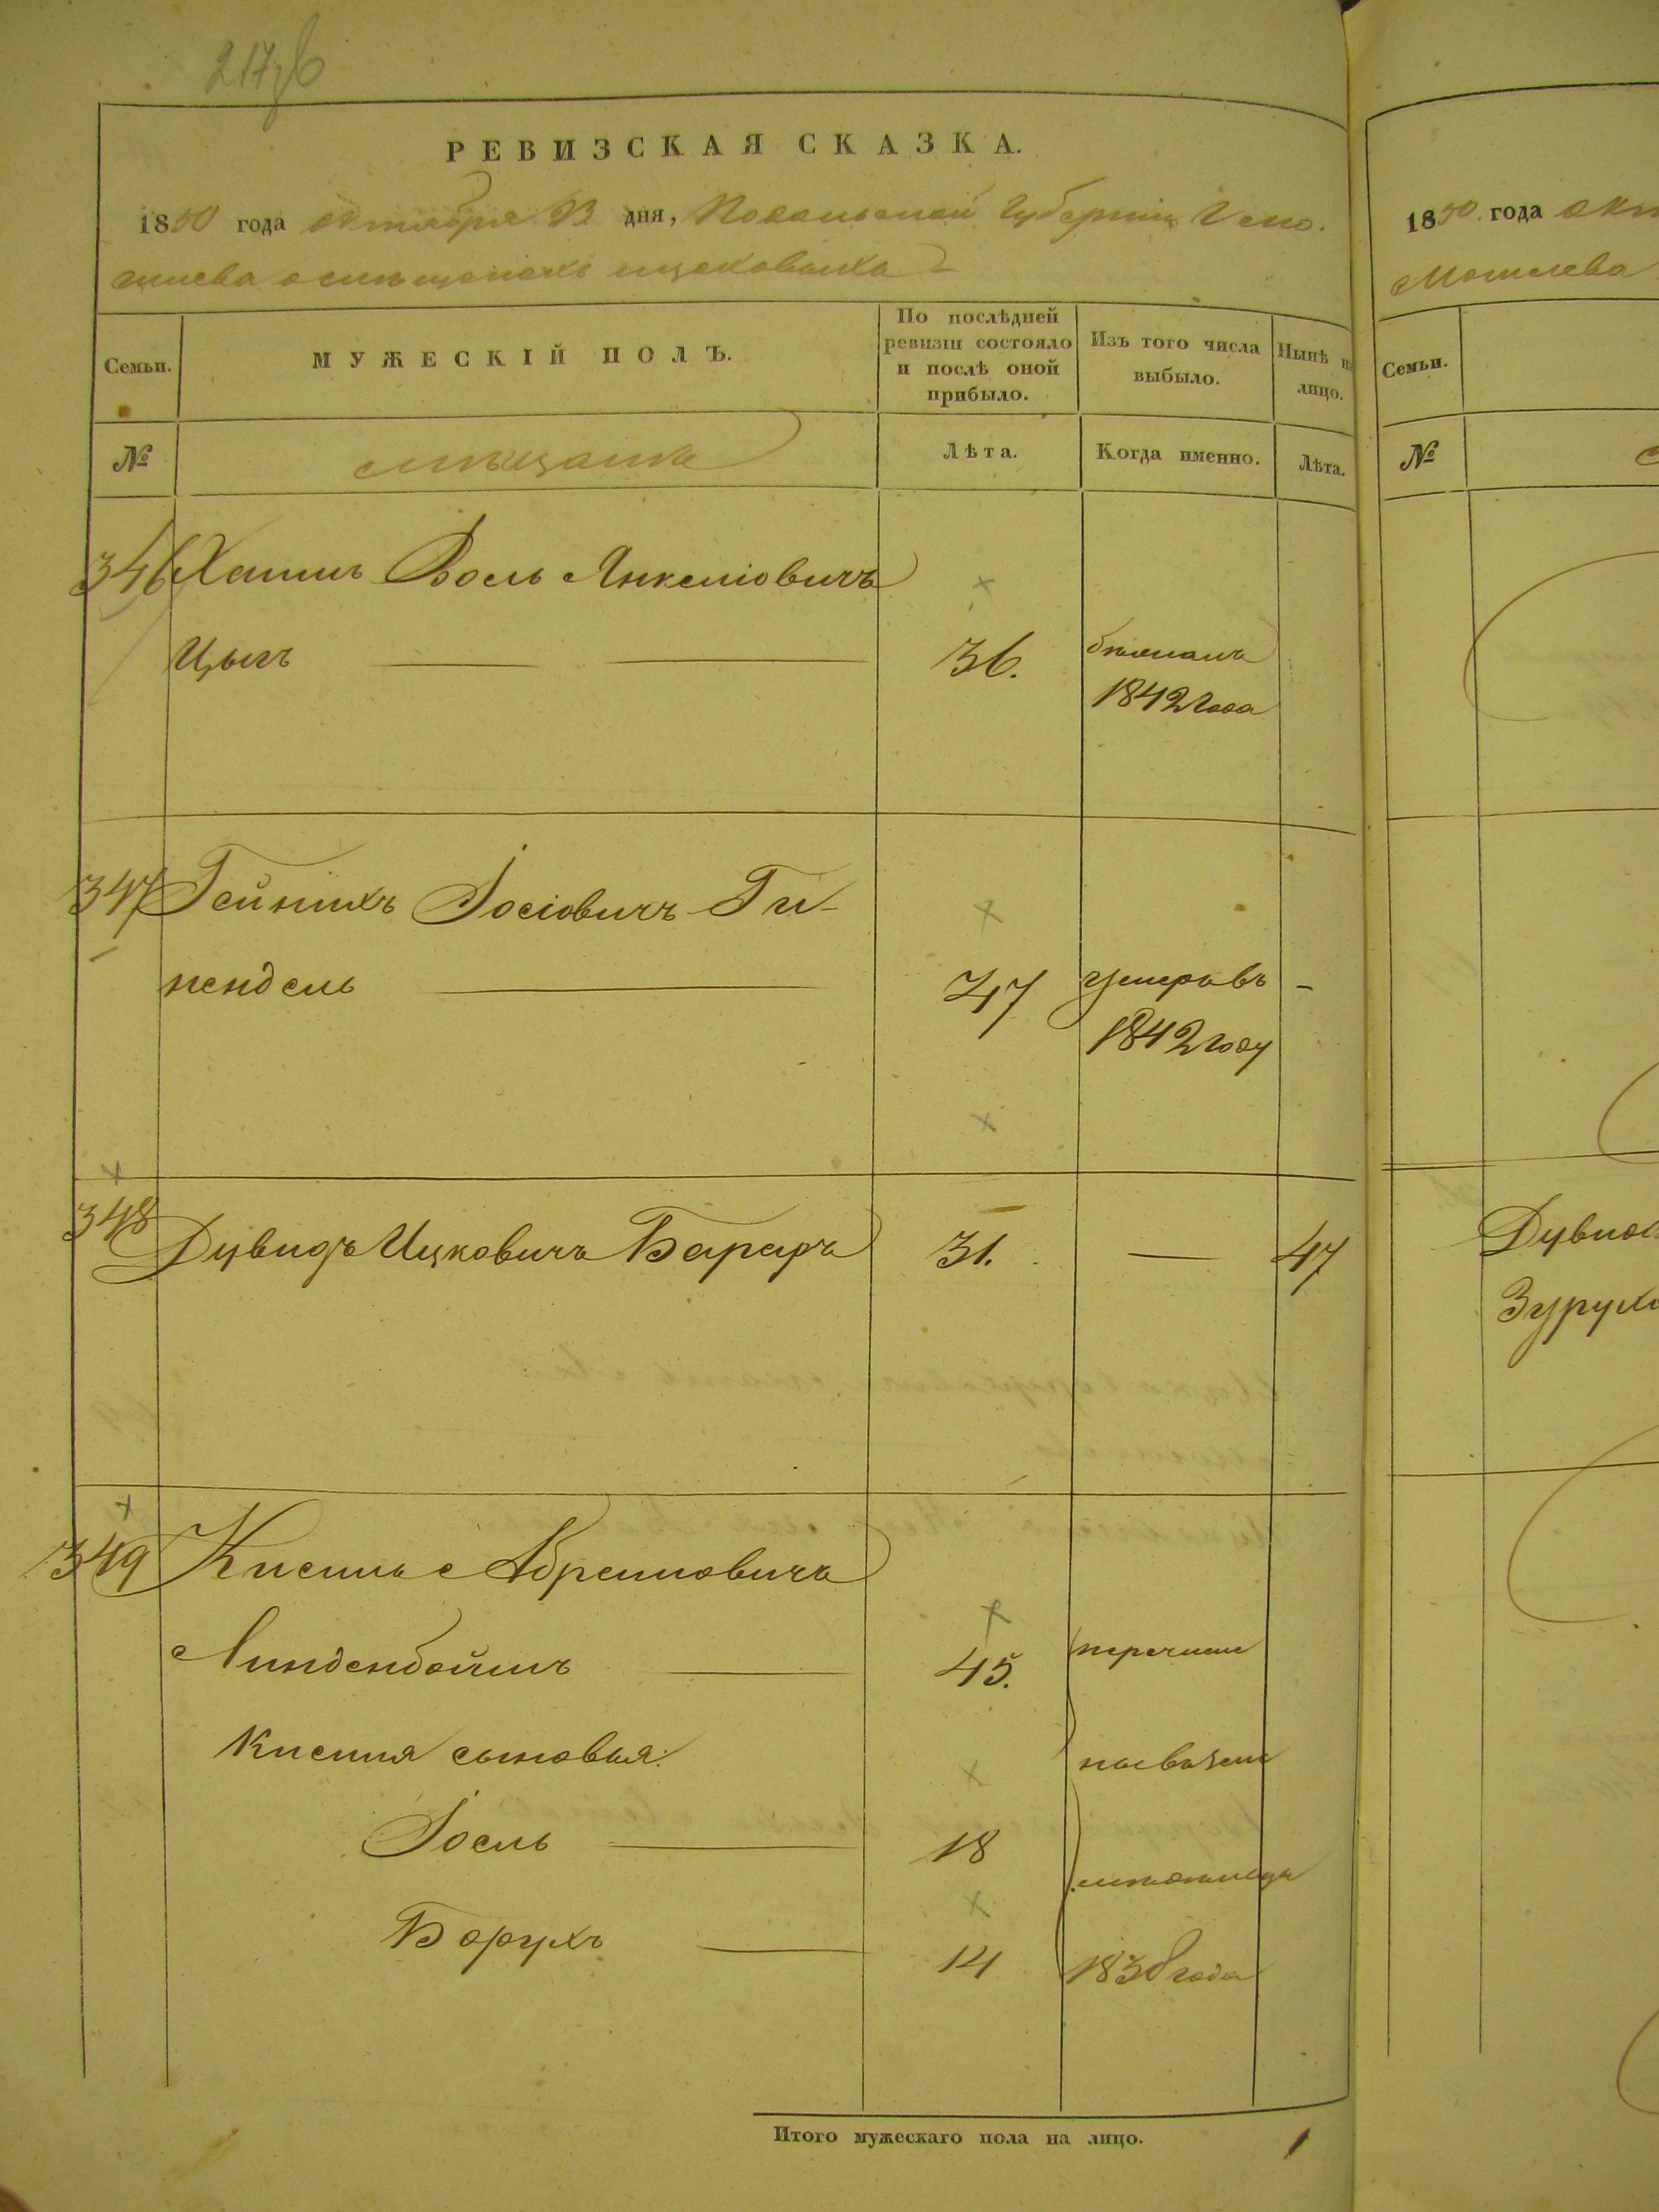 РЕВИЗСКАЯ СКАЗКА.
1850 года октября 23 дня, Подольской Губернии Г. Мо-
гилева о
Семьи.
МУЖЕСКІЙ ПОЛЪ.
По послѣдней ревизіи состояло и послѣ оной прибыло.
Изъ того числа выбыло.
Нынѣ н
лицо.
№
мѣщане
Лѣта.
Когда именно.
Лѣта.
346 Хаимъ Волъ Янкеліовичъ
Цыгъ 36. бѣжалъ
1842 года
347 Гейнихъ Іосіовичъ Ги-
пендель 47 умеръ въ -
1842 году
348 Дувидъ Ицковичъ Бараръ 31. — 47
349 Кисиль Абрамовичъ
Линденбоймъ 45. перечис
Кисиля сыновья:
Іосль 18
Борухъ 14 1838 года
Итого мужескаго пола на лицо. 1
1850. года окт
Могилева
Семьи.
№
Дувид
Зурухъ